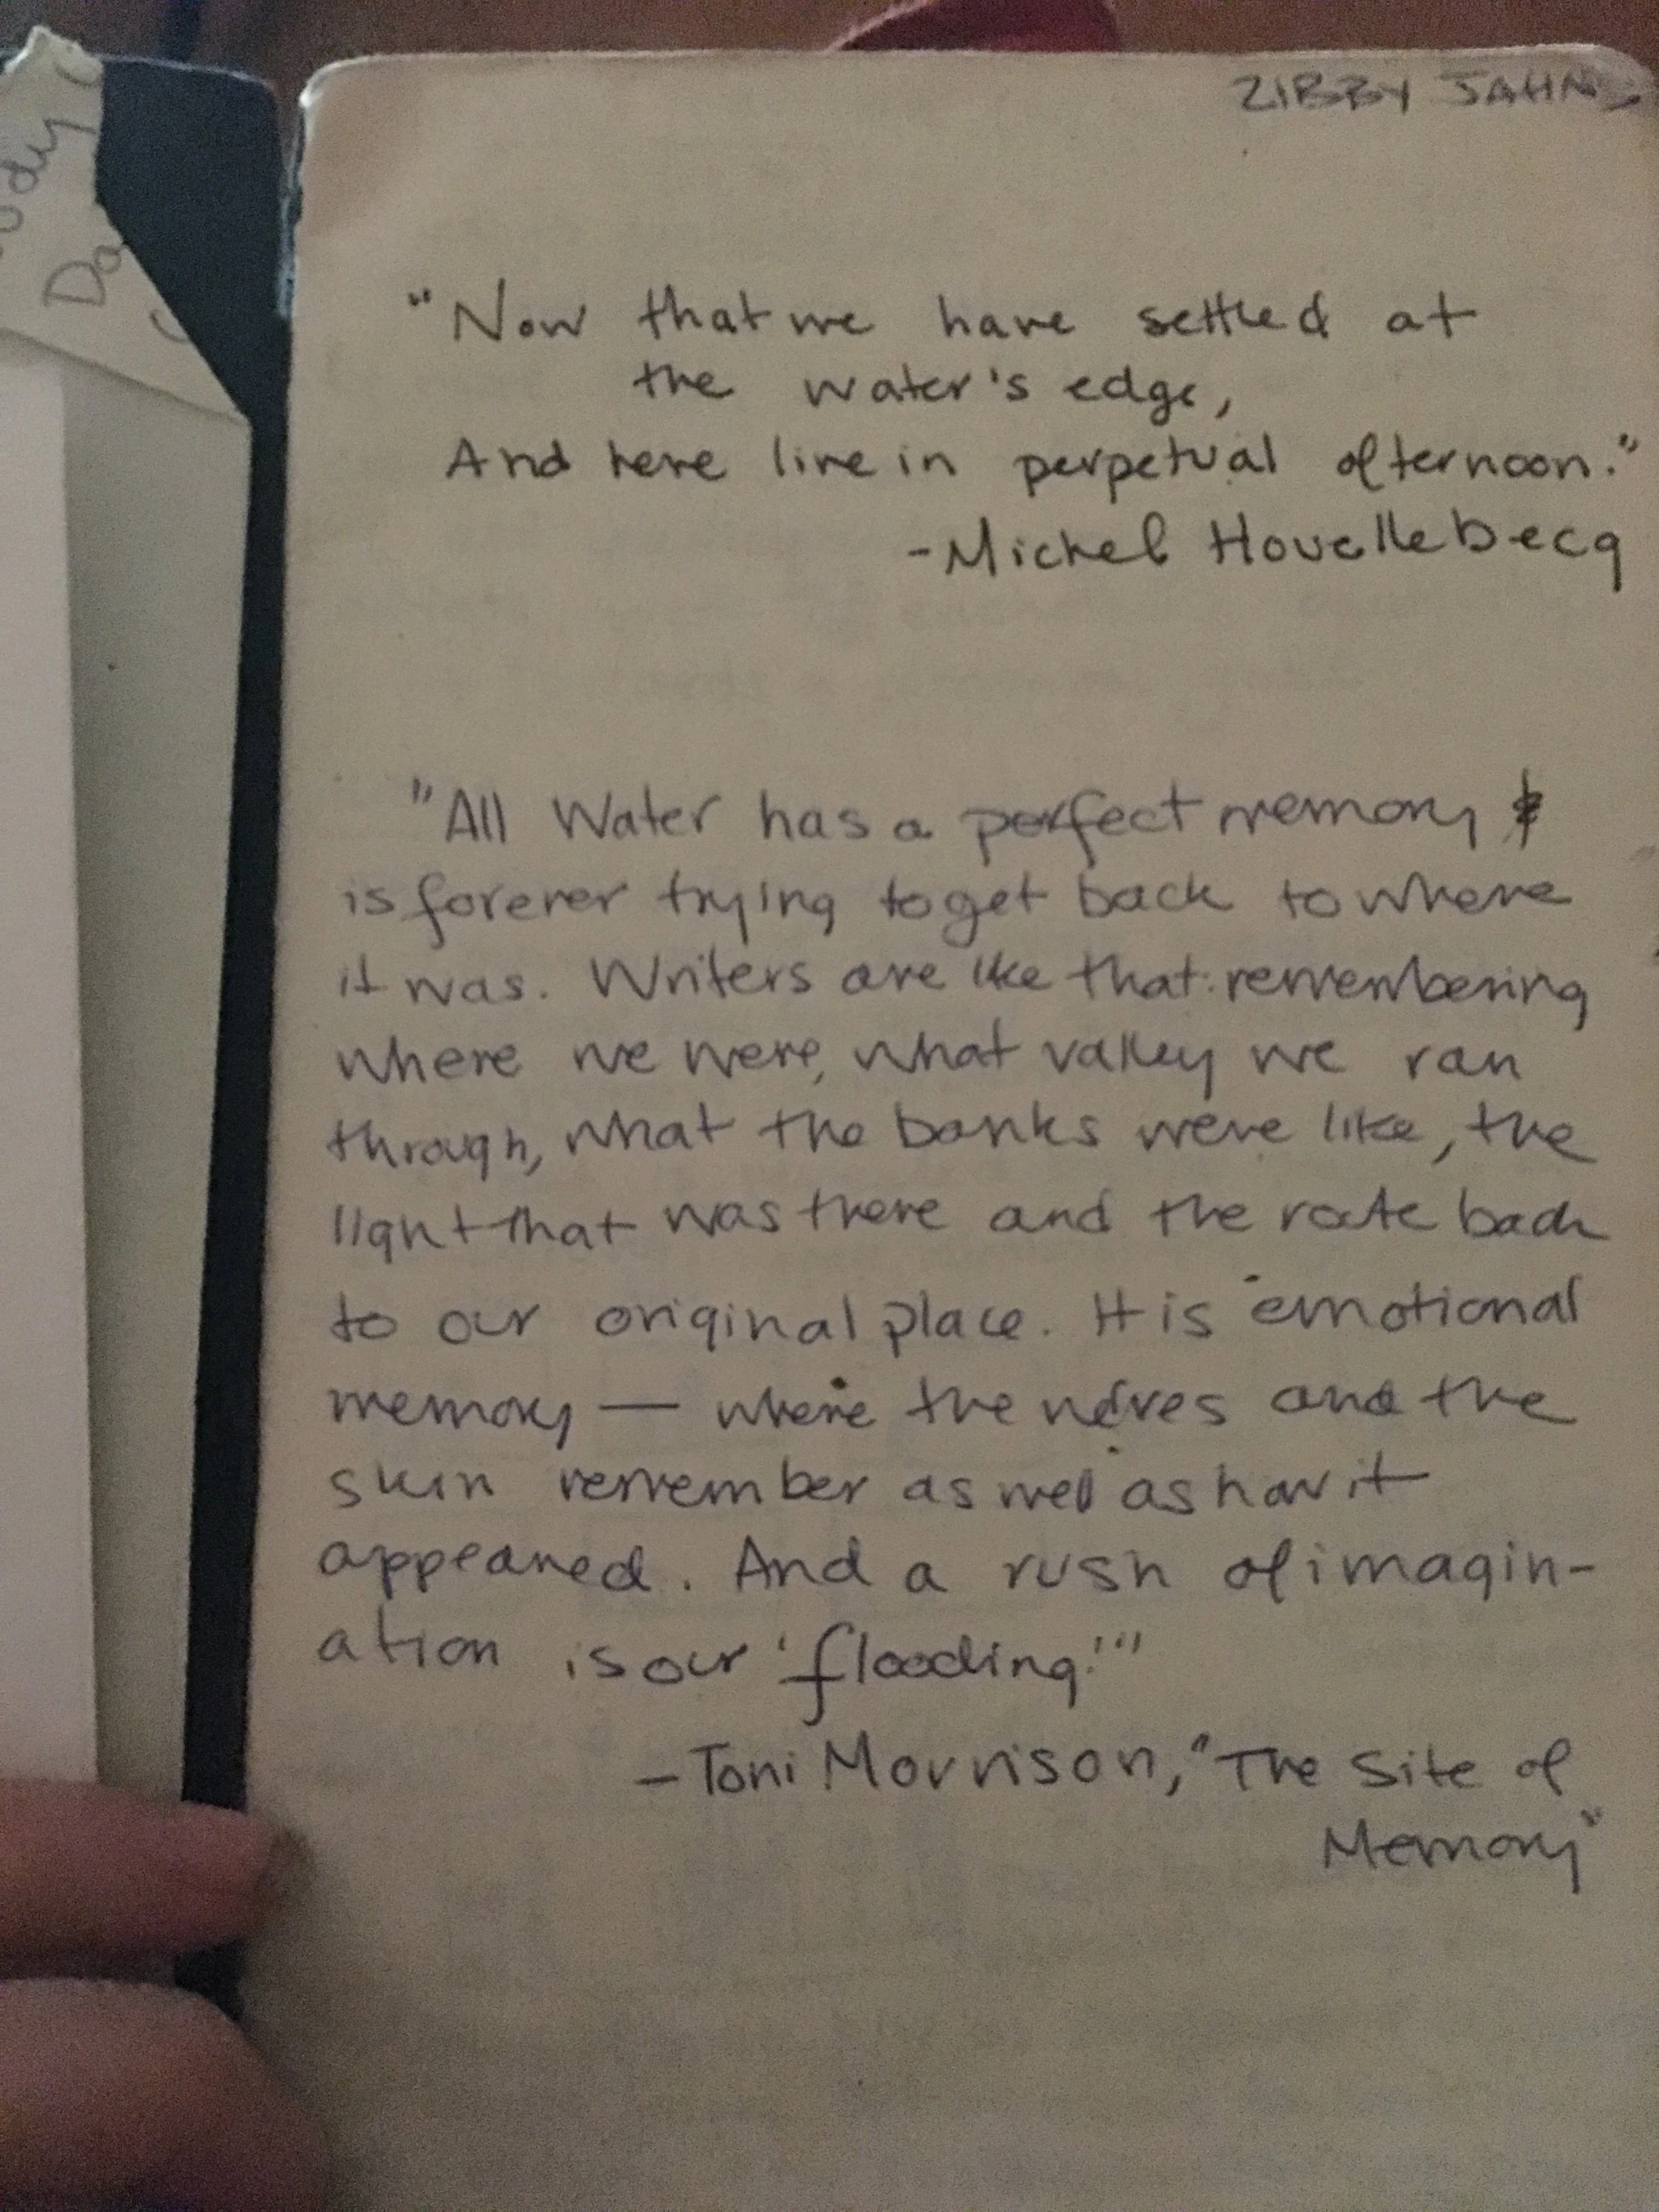 ZIBBY JAHNS
"Now that we have settled at
the water's edge,
And here live in perpetual afternoon."
-Michel Houellebecq
"All Water has a perfect memory &
is forever trying to get back to where
it was. Writers are like that: remembering
where we were, what valley we ran
through, what the banks were like, the
light that was there and the route back
to our original place. It is emotional
memory — where the nerves and the
skin remember as well as how it
appeared. And a rush of imagin-
ation is our 'flooding.'"
-Toni Morrison, "The Site of
Memory"